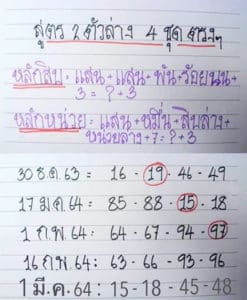 สูตร 2 ตัวล่าง 4 ชุด ตรงๆ
หลักสิบ = แสน + แสน + พัน + ร้อยบน +
3 = ? + 3
หลักหน่วย = แสน + หมื่น + สิบล่าง +
หน่วยล่าง + 7 = ? + 3
30 ธ.ค. 63 = 16 - 19 - 46 - 49
17 ม.ค. 64 : 85 - 88 - 15 - 18
1 ก.พ. 64 : 64 - 67 - 94 - 97
16 ก.พ. 64 : 63 - 66 - 93 - 96
1 มี.ค. 64 : 15 - 18 - 45 - 48